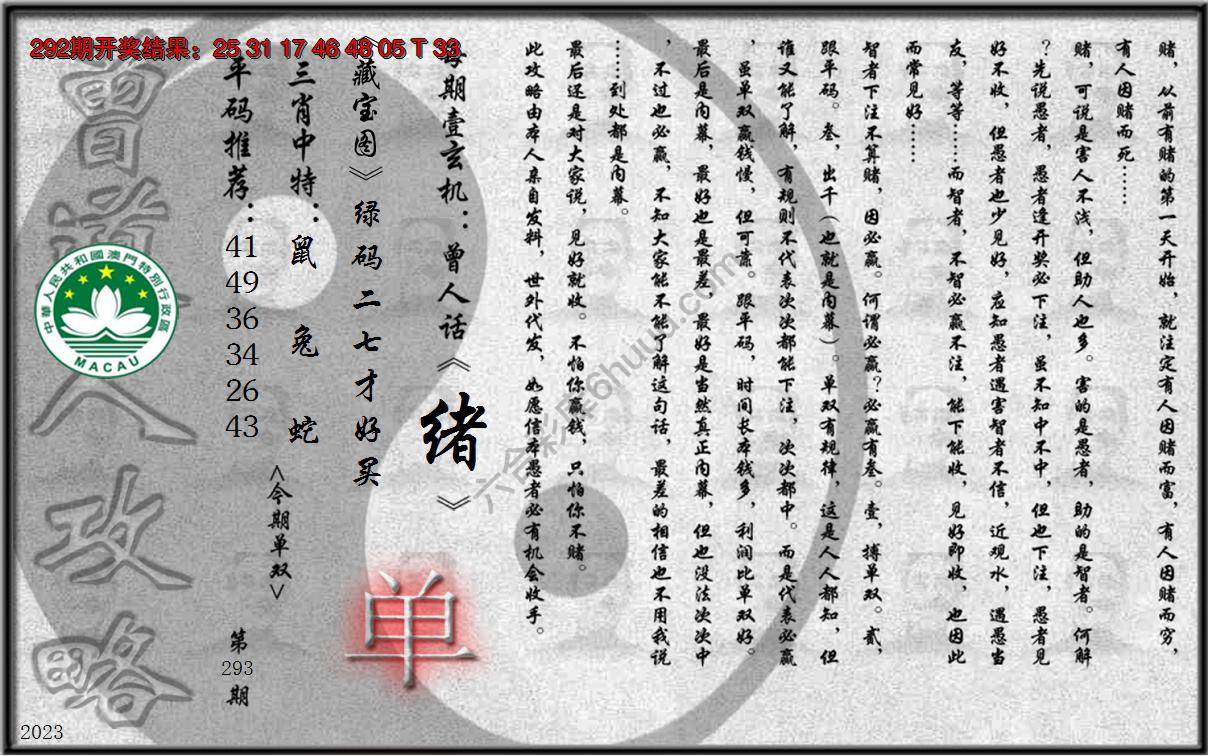 292期开奖结果：25 31 17 46 48 05 T 33
赌，从前有赌的第一天开始，就注定有人因赌而富，有人因赌而穷，
有人因赌而死……
赌，可说是害人不浅，但助人也多。害的是愚者，助的是智者。何解
？先说愚者，愚者逢开奖必下注，虽不知中不中，但也下注，愚者见
好不收，但愚者也少见好，应知愚者遇害智者不信，近观水，遇愚当
友，等等……而智者，不智必赢不注，能下能收，见好即收，也因此
而常见好……
智者下注不算赌，因必赢。何谓必赢？必赢有叁。壹，搏单双。贰，
跟平码。叁，出千（也就是内幕）。单双有规律，这是人人都知，但
谁又能了解，有规则不代表次次都能下注，次次都中。而是代表必赢
，虽单双赢钱慢，但可靠。跟平码，时间长本钱多，利润比单双好。
最后是内幕，最好也是最差，最好是当然真正内幕，但也没法次次中
，不过也必赢，不知大家能不能了解这句话，最差的相信也不用我说
……到处都是内幕。
最后还是对大家说，见好就收。不怕你赢钱，只怕你不赌。
此攻略由本人亲自发料，世外代发，如愿信本愚者必有机会收手。
每期壹玄机：曾人话《绪》
《藏宝图》绿码二七才好买
单
三肖中特：鼠 兔 蛇
<今期单双>
平码推荐：41 49 36 34 26 43
第293期
曾道人攻略
中華人民共和國澳門特別行政區
MACAU
六合彩库6huuu.com
2023